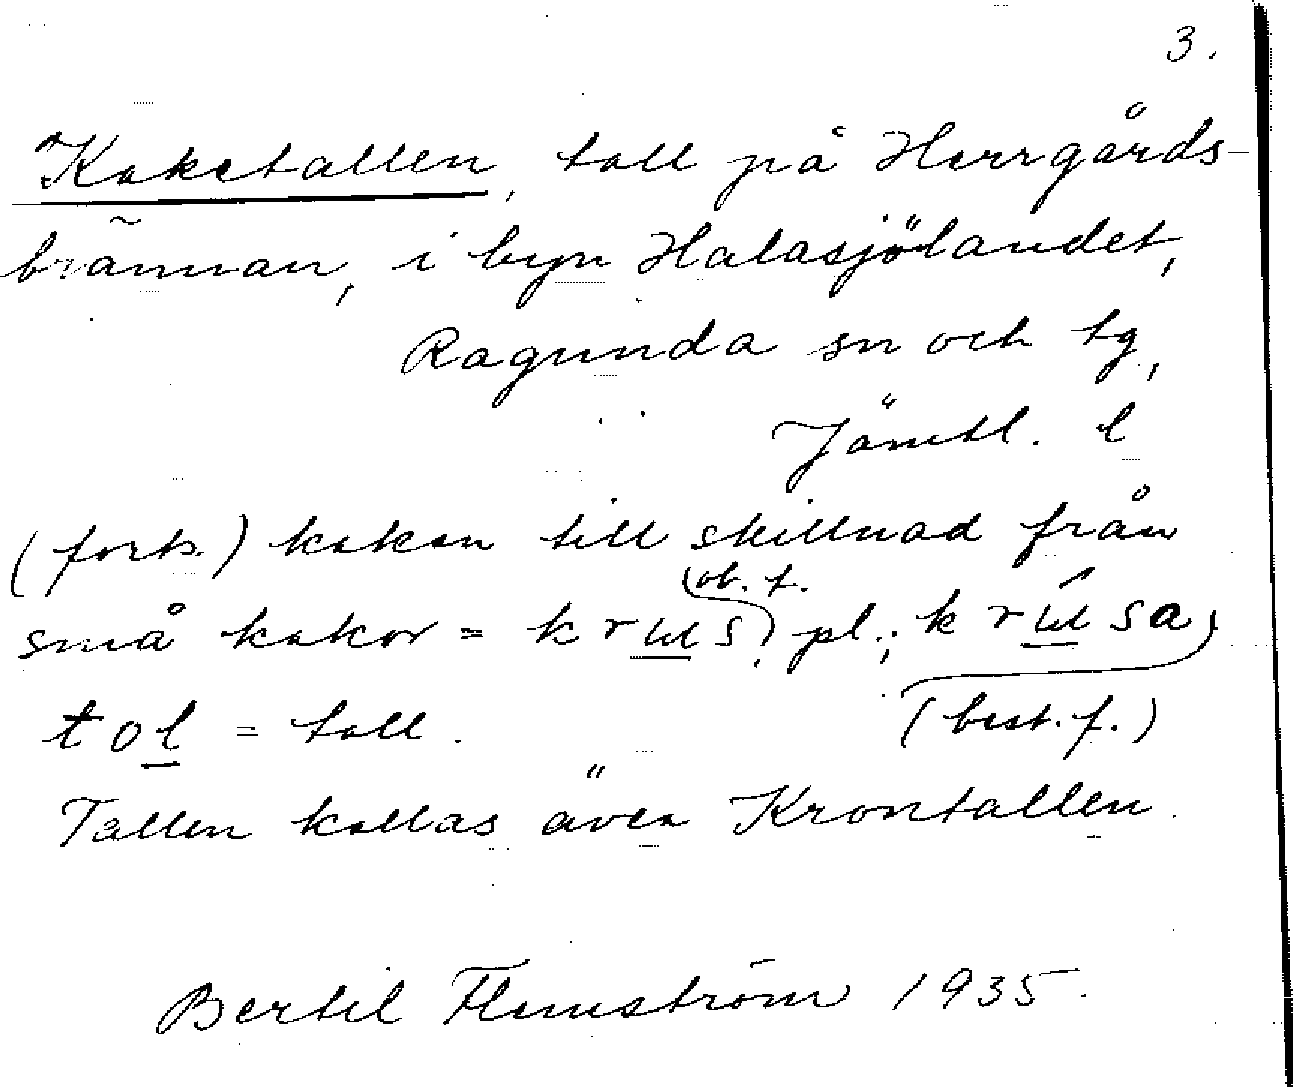 3.
Kaketallen, tall på Herrgårds-
brännan, i byn Halasjölandet,
Ragunda sn och tg,
Jämtl. l
(forts.) kakan till skillnad från
(ob. f.
små kakor = k r ɯ s), pl.; k r ɯ́ s a,
t o l = tall. (best. f.)
Tallen kallas även Krontallen.
Bertil Flemström 1935.